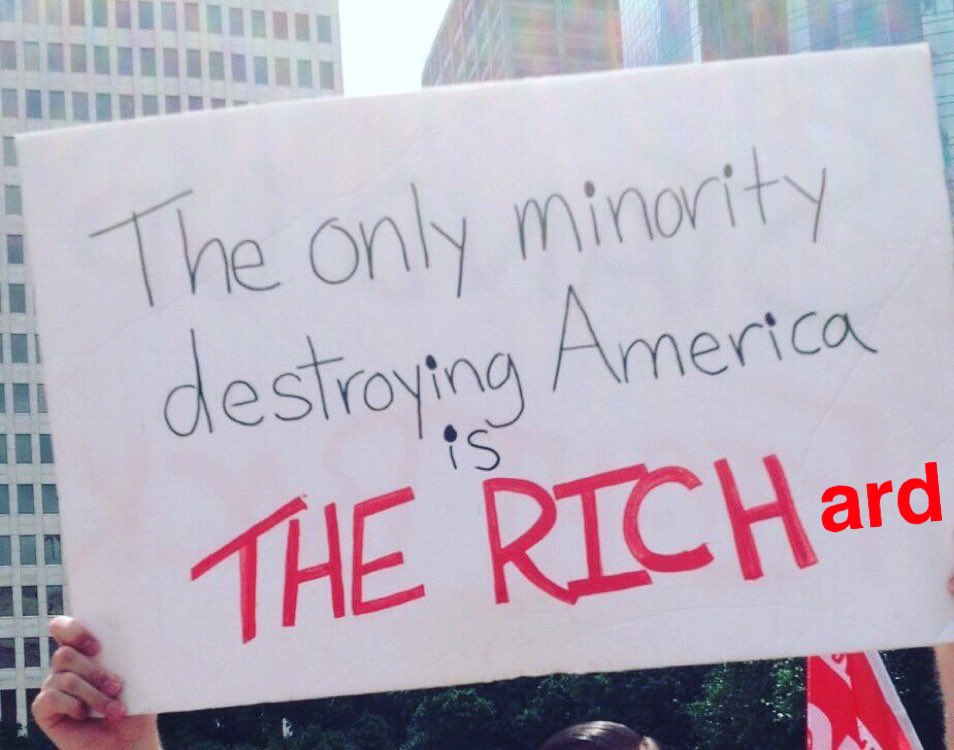 The only minority
destroying America
is
THE RICHard